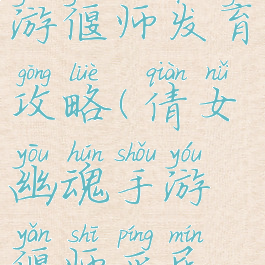 游偃师发育
gōng lüè qiàn nǚ
攻略(倩女
yōu hún shǒu yóu
幽魂手游
yǎn shī píng mín
偃师平民